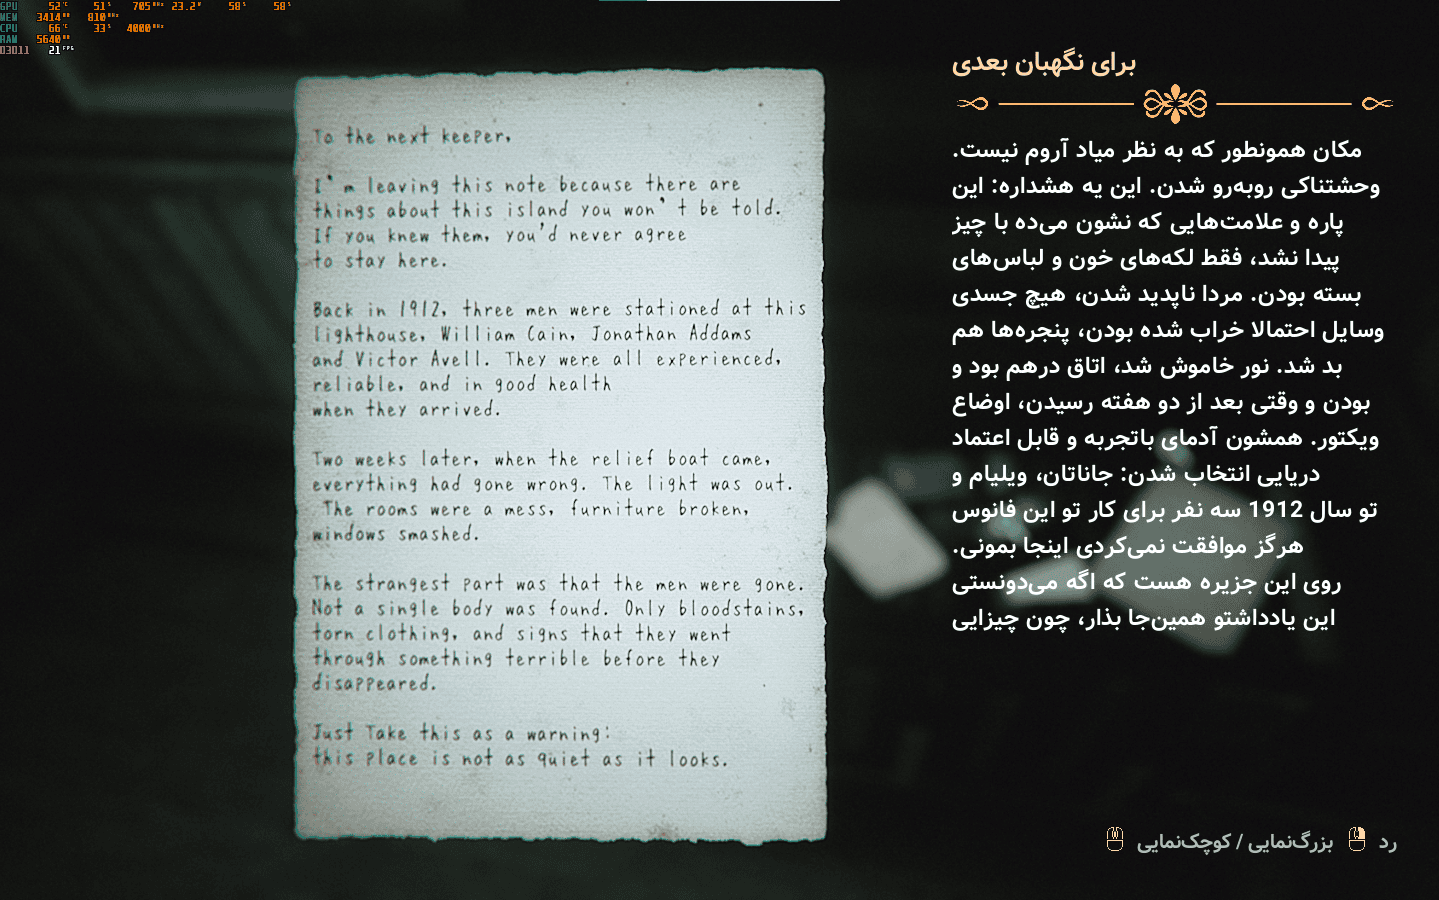 GPU 52°C 51% 705MHz 23.2W 58% 58%
MEM 3414MB 810MHz
CPU 66°C 33% 4000MHz
RAM 5640MB
D3D11 21FPS
To the next keeper,
I'm leaving this note because there are
things about this island you won't be told.
If you knew them, you'd never agree
to stay here.
Back in 1912, three men were stationed at this
lighthouse, William Cain, Jonathan Addams
and Victor Avell. They were all experienced,
reliable, and in good health
when they arrived.
Two weeks later, when the relief boat came,
everything had gone wrong. The light was out.
The rooms were a mess, furniture broken,
windows smashed.
The strangest part was that the men were gone.
Not a single body was found. Only bloodstains,
torn clothing, and signs that they went
through something terrible before they
disappeared.
Just Take this as a warning:
this place is not as quiet as it looks.
برای نگهبان بعدی
مکان همونطور که به نظر میاد آروم نیست.
وحشتناکی روبه‌رو شدن. این یه هشداره: این
پاره و علامت‌هایی که نشون می‌ده با چیز
پیدا نشد، فقط لکه‌های خون و لباس‌های
بسته بودن. مردا ناپدید شدن، هیچ جسدی
وسایل احتمالا خراب شده بودن، پنجره‌ها هم
بد شد. نور خاموش شد، اتاق درهم بود و
بودن و وقتی بعد از دو هفته رسیدن، اوضاع
ویکتور. همشون آدمای باتجربه و قابل اعتماد
دریایی انتخاب شدن: جاناتان، ویلیام و
تو سال 1912 سه نفر برای کار تو این فانوس
هرگز موافقت نمی‌کردی اینجا بمونی.
روی این جزیره هست که اگه می‌دونستی
این یادداشتو همین‌جا بذار، چون چیزایی
رد بزرگ‌نمایی / کوچک‌نمایی